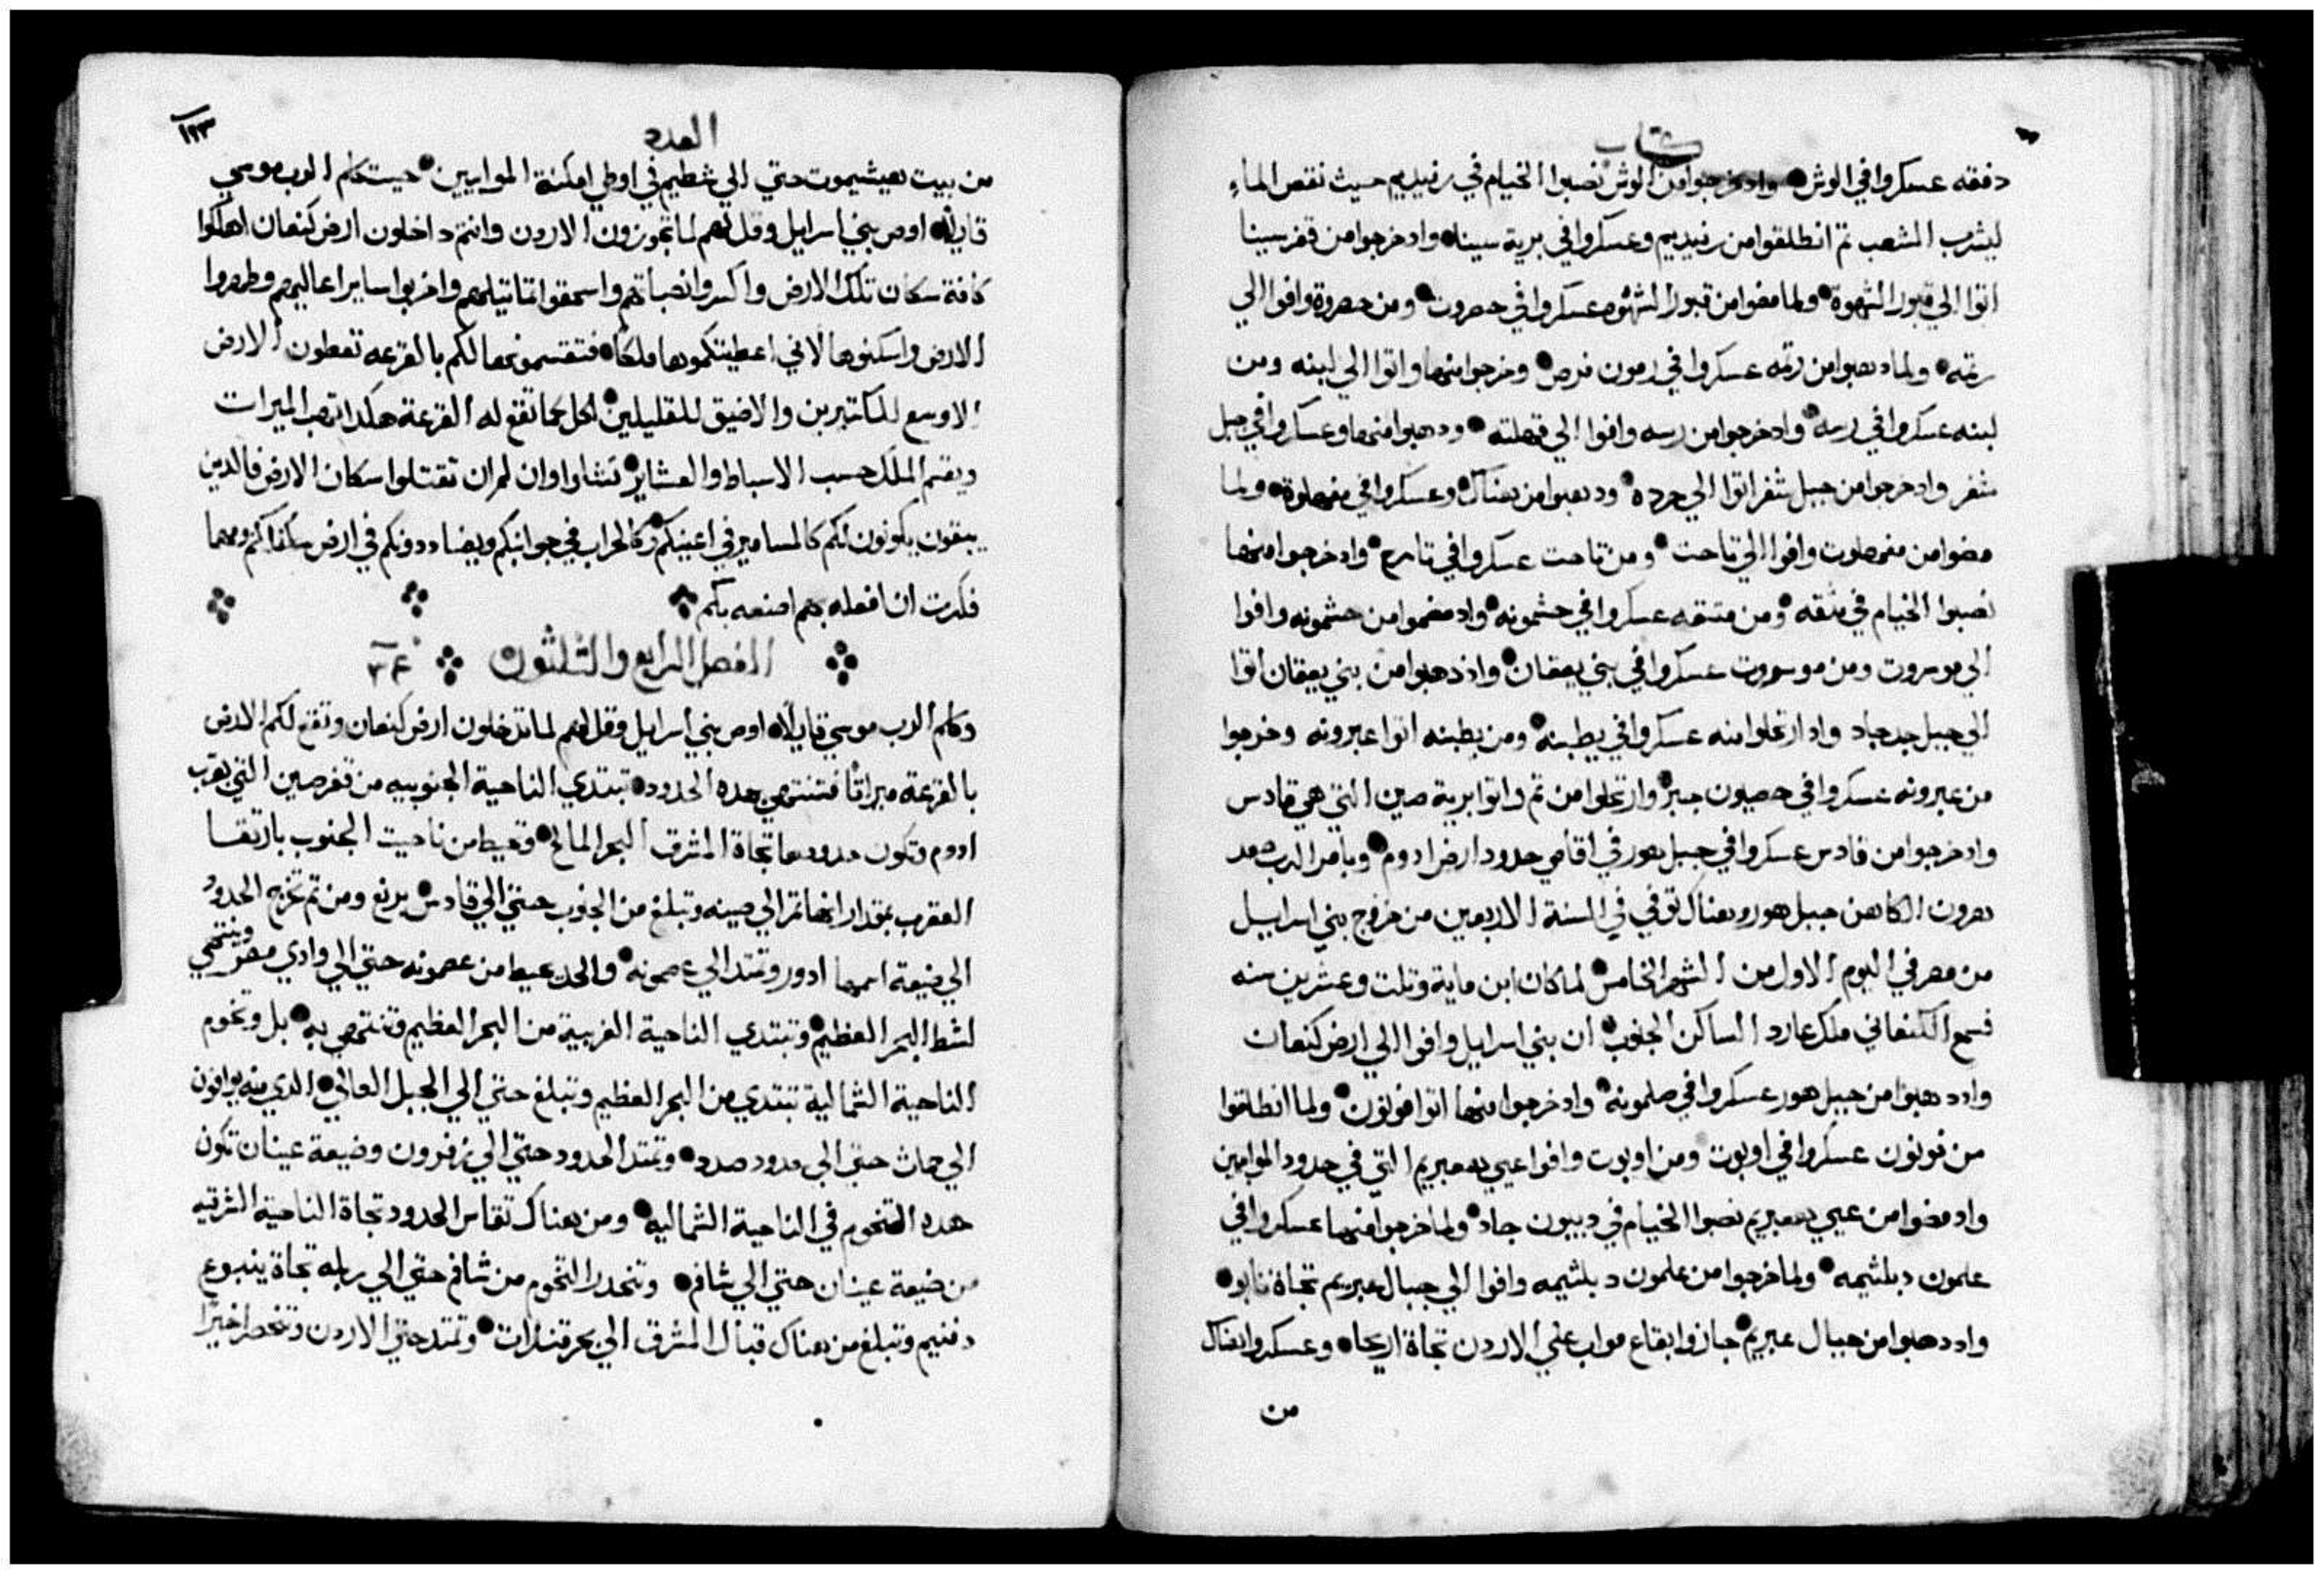 كتاب
دفقه عسكروا في الوش وادخرجوا من الوش نصبوا الخيام في رفيديم حيث نقص الماء
ليشرب الشعب تم انطلقوا من رفيديم وعسكروا في برية سينا وادخرجوا من قفر سينا
اتوا الي قبور الشهوة ولما مضوا من قبور الشهوه عسكروا في حصروت ومن حصروة وافوا الي
رتمه ولما دهبوا من رتمه عسكروا في رمون فرص وخرجوا منها واتوا الي لبنه ومن
لبنه عسكروا في رسه وادخرجوا من رسه وافوا الي قهلته ودهبوا منها وعسكروا في جبل
شفر وادخرجوا من جبل شفر اتوا الي حرده ودهبوا من هناك وعسكروا في مقهلوة ولما
مضوا من مقهلوت وافوا الي تاحت ومن تاحت عسكروا في تارح وادخرجوا منها
نصبوا الخيام في متقه ومن متقه عسكروا في حشمونه وادمضوا من حشمونه وافوا
الي موسروت ومن موسروت عسكروا في بني يعقان واذ دهبوا من بني يعقان اتوا
الي جبل جدجاد وادارتحلوا منه عسكروا في يطبنه ومن يطبنه اتوا عبرونه وخرجوا
من عبرونه عسكروا في حصيون جبر وارتحلوا من تم واتوا برية صين التي هي قادس
وادخرجوا من قادس عسكروا في جبل هور في اقاصي حدود ارض ادوم وبامر الرب صعد
هرون الكاهن جبل هور وهناك توفي في السنة الاربعين من خروج بني اسراييل
من مصر في اليوم الاول من الشهر الخامس لما كان ابن ماية وتلت وعشرين سنه
فسمع الكنعاني ملك عارد الساكن الجنوب ان بني اسراييل وافوا الي ارض كنعان
وادد هبوا من جبل هور عسكروا في صلمونه وادخرجوا منها اتوا فونون ولما انطلقوا
من فونون عسكروا في اوبوت ومن اوبوت وافوا عيي هعبريم التي في حدود الموابيين
وادمضوا من عيي هعبريم نصبوا الخيام في ديبون جاد ولما خرجوا منها عسكروا في
علمون دبلثيمه ولما خرجوا من علمون دبلثيمه وافوا الي جبال عبريم تجاة نابو
وادد هبوا من جبال عبريم جازوا بقاع مواب علي الاردن تجاة اريحا وعسكروا هناك
من
العدد
١٢٣
من بيت هيشيموت حتي الي شطيم في اوطي امكنة الموابيين حيت كلم الرب موسي
قايلًا اوص بني اسراييل وقل لهم لما تجوزون الاردن وانتم داخلون ارض كنعان اهلكوا
كافة سكان تلك الارض واكسروا نصباتهم واسحقوا تماتيلهم واخربوا ساير اعاليهم وطهروا
الارض واسكنوها لاني اعطيتكموها ملكًا فتقسمونها لكم بالقرعه تعطون الارض
الاوسع للكاتيرين والاضيق للقليلين لكل كما تقع له القرعة هكدا توهب الميرات
ويقسم الملك حسب الاسباط والعشاير تشاوا وان لم ان تقتلوا سكان الارض فالدين
يبقون يكونون لكم كالمسامير في اعينكم وكالحراب في جوانبكم ويضاددونكم في ارض سكناكم ومهما
فكرت ان افعله بهم اصنعه بكم
الفصل الرابع والتلثون ٣٤
وكلم الرب موسي قايلًا اوص بني اسراييل وقل لهم لما تدخلون ارض كنعان وتقع لكم الارض
بالقرعة ميراثًا فتنتهي هده الحدود تبتدي الناحية الجنوبيه من قفر صين التي بقرب
ادوم وتكون حدودها تجاة المشرق البحر المالح وتحيط من ناحيت الجنوب بارتقا
العقرب بمقدار انها تمر الي صينه وتبلغ من الجنوب حتي الي قادس برنع ومن تم تخرج الحدود
الي ضيعة اسمها ادور وتمتد الي عصمونه والحد يحيط من عصمونه حتي الي وادي مصر وينتهي
لشط البحر العظيم وتبتدي الناحية الغربية من البحر العظيم وتنتهي به بل وتخوم
الناحية الشمالية تبتدي من البحر العظيم وتبلغ حتي الي الجبل العالي الدي منه يوافون
الي حماث حتي الي حدود صدد وتمتد الحدود حتي الي زفرون وضيعة عينان تكون
هده التخوم في الناحية الشماليه ومن هناك تقاس الحدود تجاة الناحية الشرقيه
من ضيعة عينان حتي الي شافم وتنحدر التخوم من شافم حتي الي ربله تجاة ينبوع
دفنيم وتبلغ من هناك قبال المشرق الي بحر قنرات وتمتد حتي الاردن وتنحصر اخيرًا